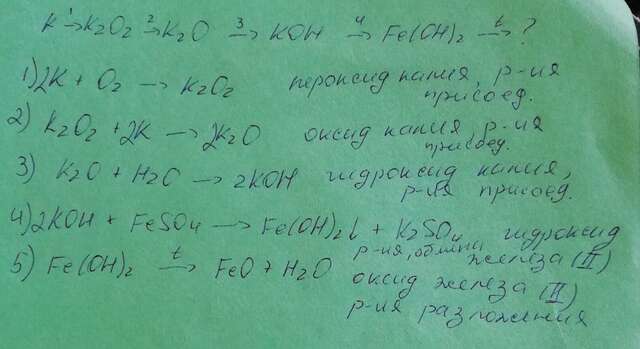 K 1→ K2O2 2→ K2O 3→ KOH 4→ Fe(OH)2 t→ ?
1) 2K + O2 → K2O2 пероксид калия, р-ия присоед.
2) K2O2 + 2K → 2K2O оксид калия, р-ия присоед.
3) K2O + H2O → 2KOH гидроксид калия, р-ия присоед.
4) 2KOH + FeSO4 → Fe(OH)2↓ + K2SO4 гидроксид железа (II)
р-ия, обмена
5) Fe(OH)2 t→ FeO + H2O оксид железа (II)
р-ия разложения